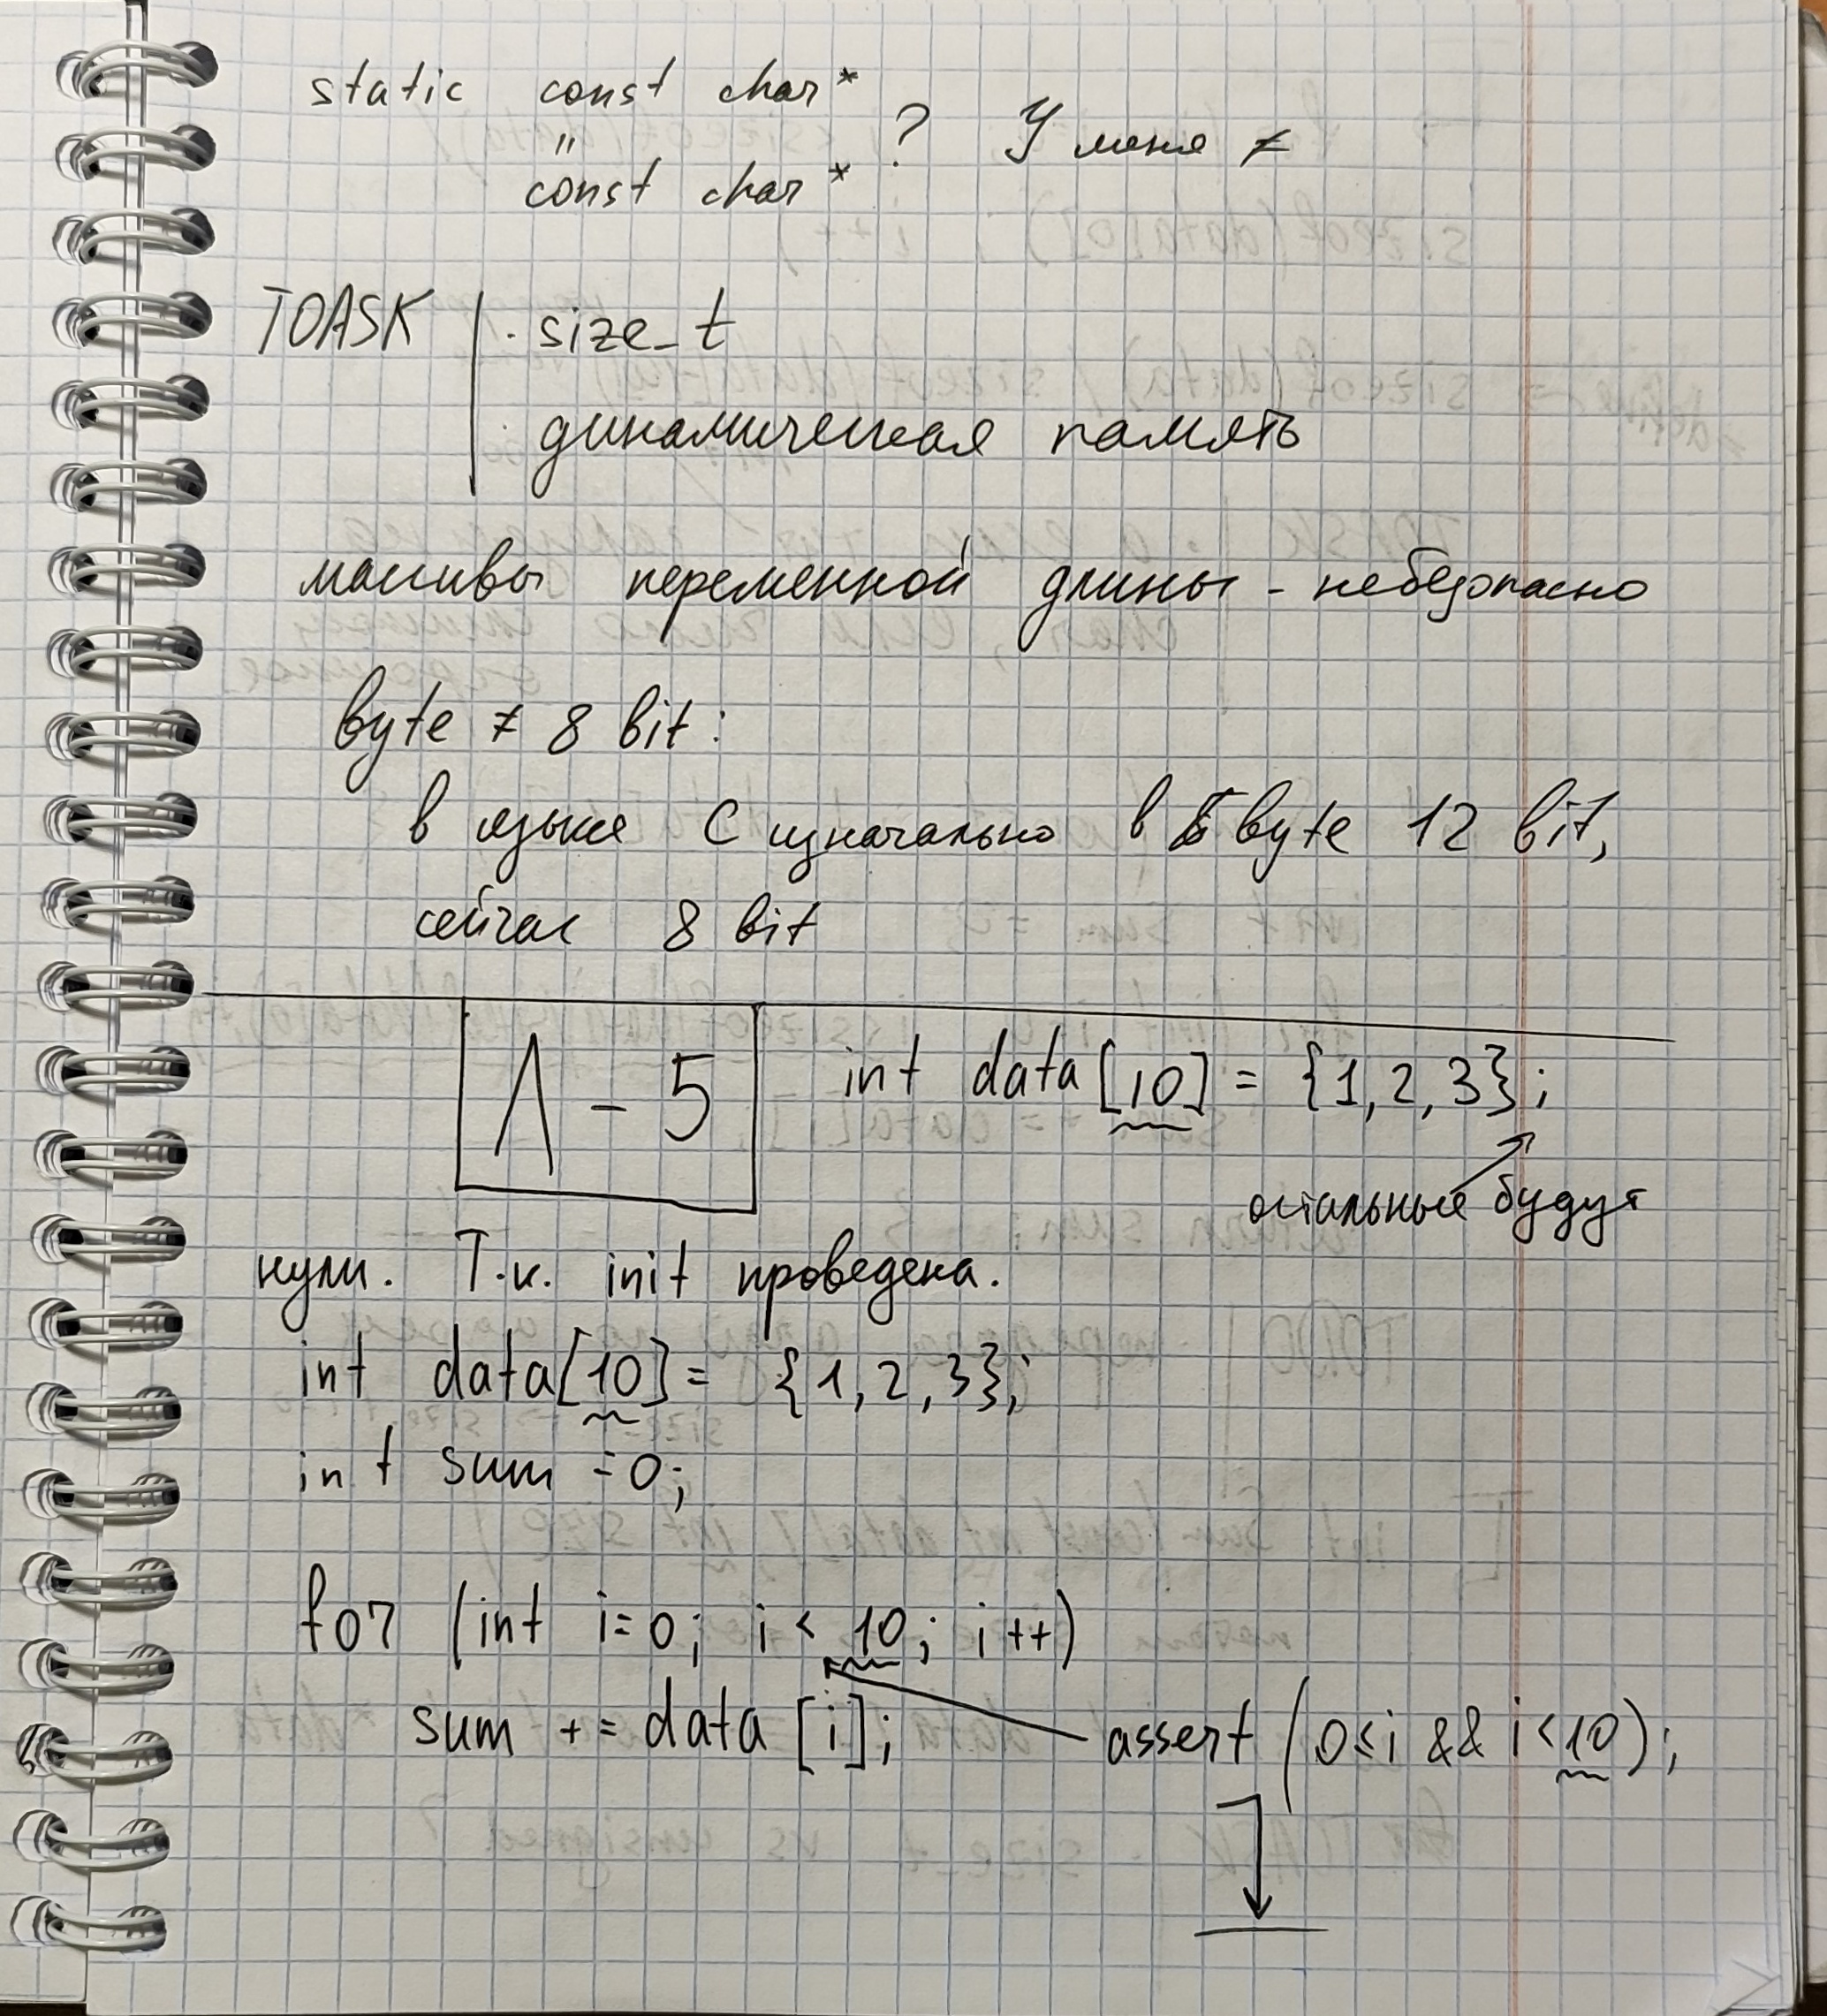 static const char*
" ? У меня ≠
const char*
TOASK | · size_t
динамическая память
массивы переменной длины - небезопасно
byte ≠ 8 bit:
в языке C изначально в byte 12 bit,
сейчас 8 bit
Л - 5 int data[10] = {1, 2, 3};
остальные будут
нули. Т.к. init проведена.
int data[10] = {1, 2, 3};
int sum = 0;
for (int i=0; i < 10; i++)
sum += data[i]; assert (0≤i && i<10);